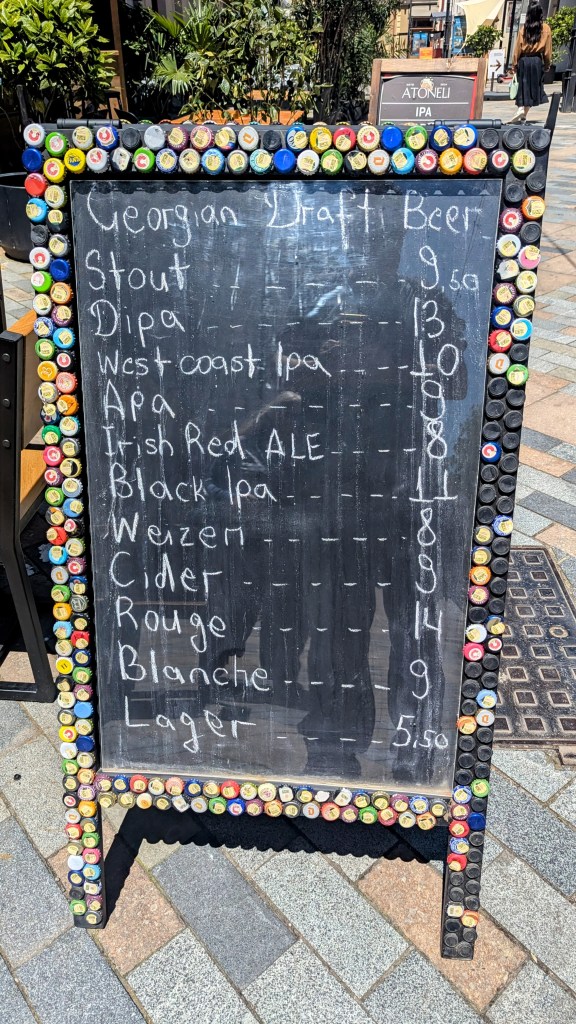 ATONELI
IPA
Georgian Draft Beer
Stout - - - - - - 9,50
Dipa - - - - - - - 13
West coast Ipa - - - - 10
Apa - - - - - - - 9
Irish Red ALE - - - - 8
Black Ipa - - - - - 11
Weizen - - - - - - 8
Cider - - - - - 9
Rouge - - - - 14
Blanche - - - - 9
Lager - - - - 5,50